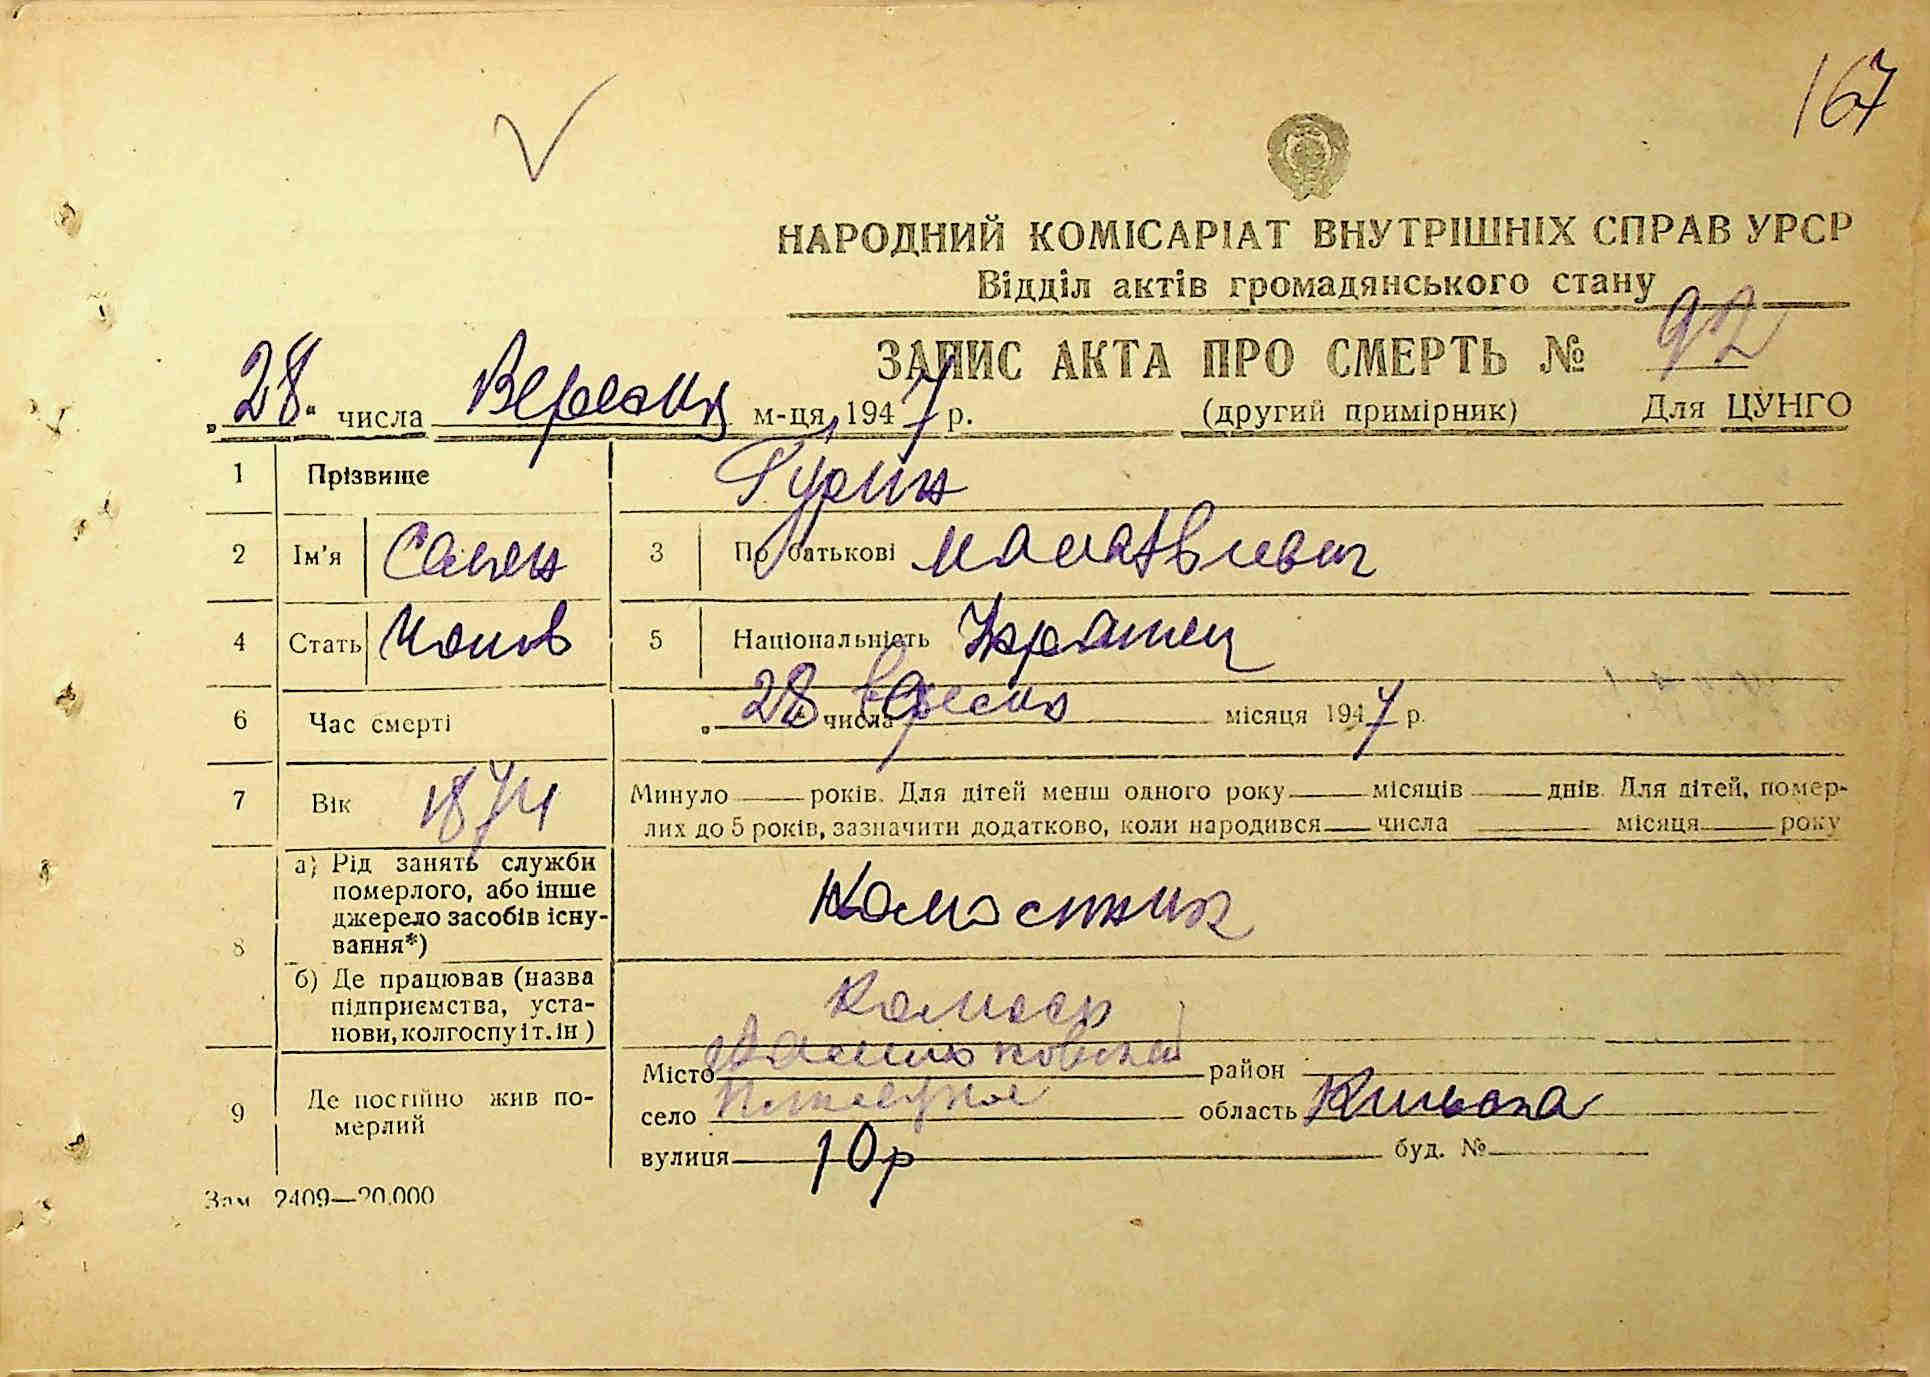 167
НАРОДНИЙ КОМІСАРІАТ ВНУТРІШНІХ СПРАВ УРСР
Відділ актів громадянського стану
ЗАПИС АКТА ПРО СМЕРТЬ № 92
„28“ числа Вересня м-ця, 1947 р. (другий примірник) Для ЦУНГО
1 Прізвище Гурин
2 Ім'я Семен 3 По батькові
4 Стать 5 Національність Украинец
6 Час смерті „28 числа вересня місяця 1947 р.
7 Вік 1874 Минуло — років. Для дітей менш одного року — місяців — днів. Для дітей, помер-
лих до 5 років, зазначити додатково, коли народився — числа — місяця — року
8 а) Рід занять служби
померлого, або інше
джерело засобів існу-
вання*)
б) Де працював (назва
підприємства, уста-
нови, колгоспу і т. ін)
9 Де постійно жив по-
мерлий
Місто район
село область
вулиця 10 р буд. №
Зам 2409—20.000